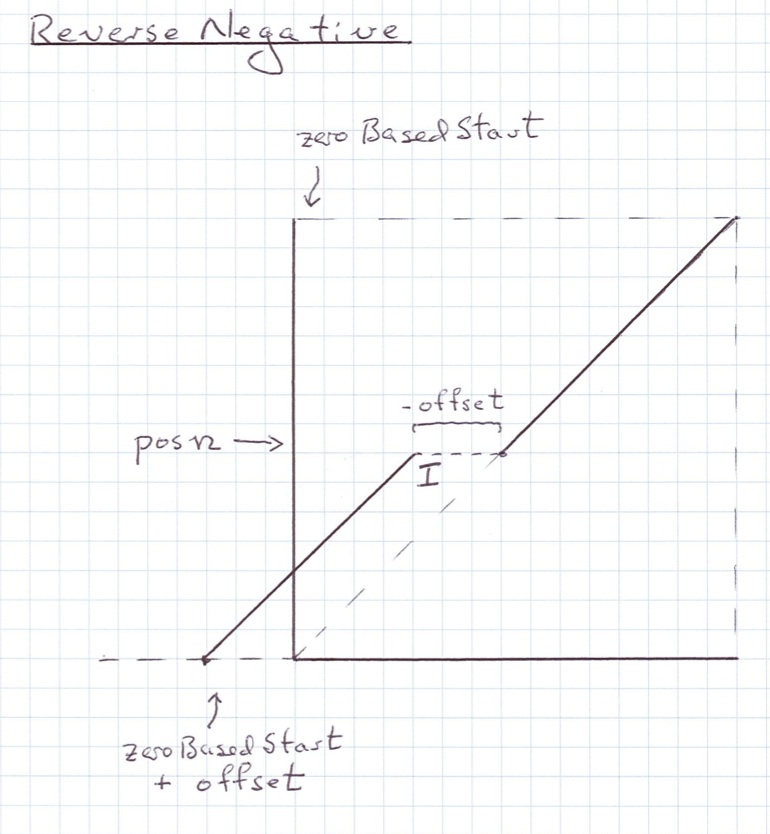 Reverse Negative
zeroBasedStart
-offset
posn
I
zeroBasedStart
+ offset